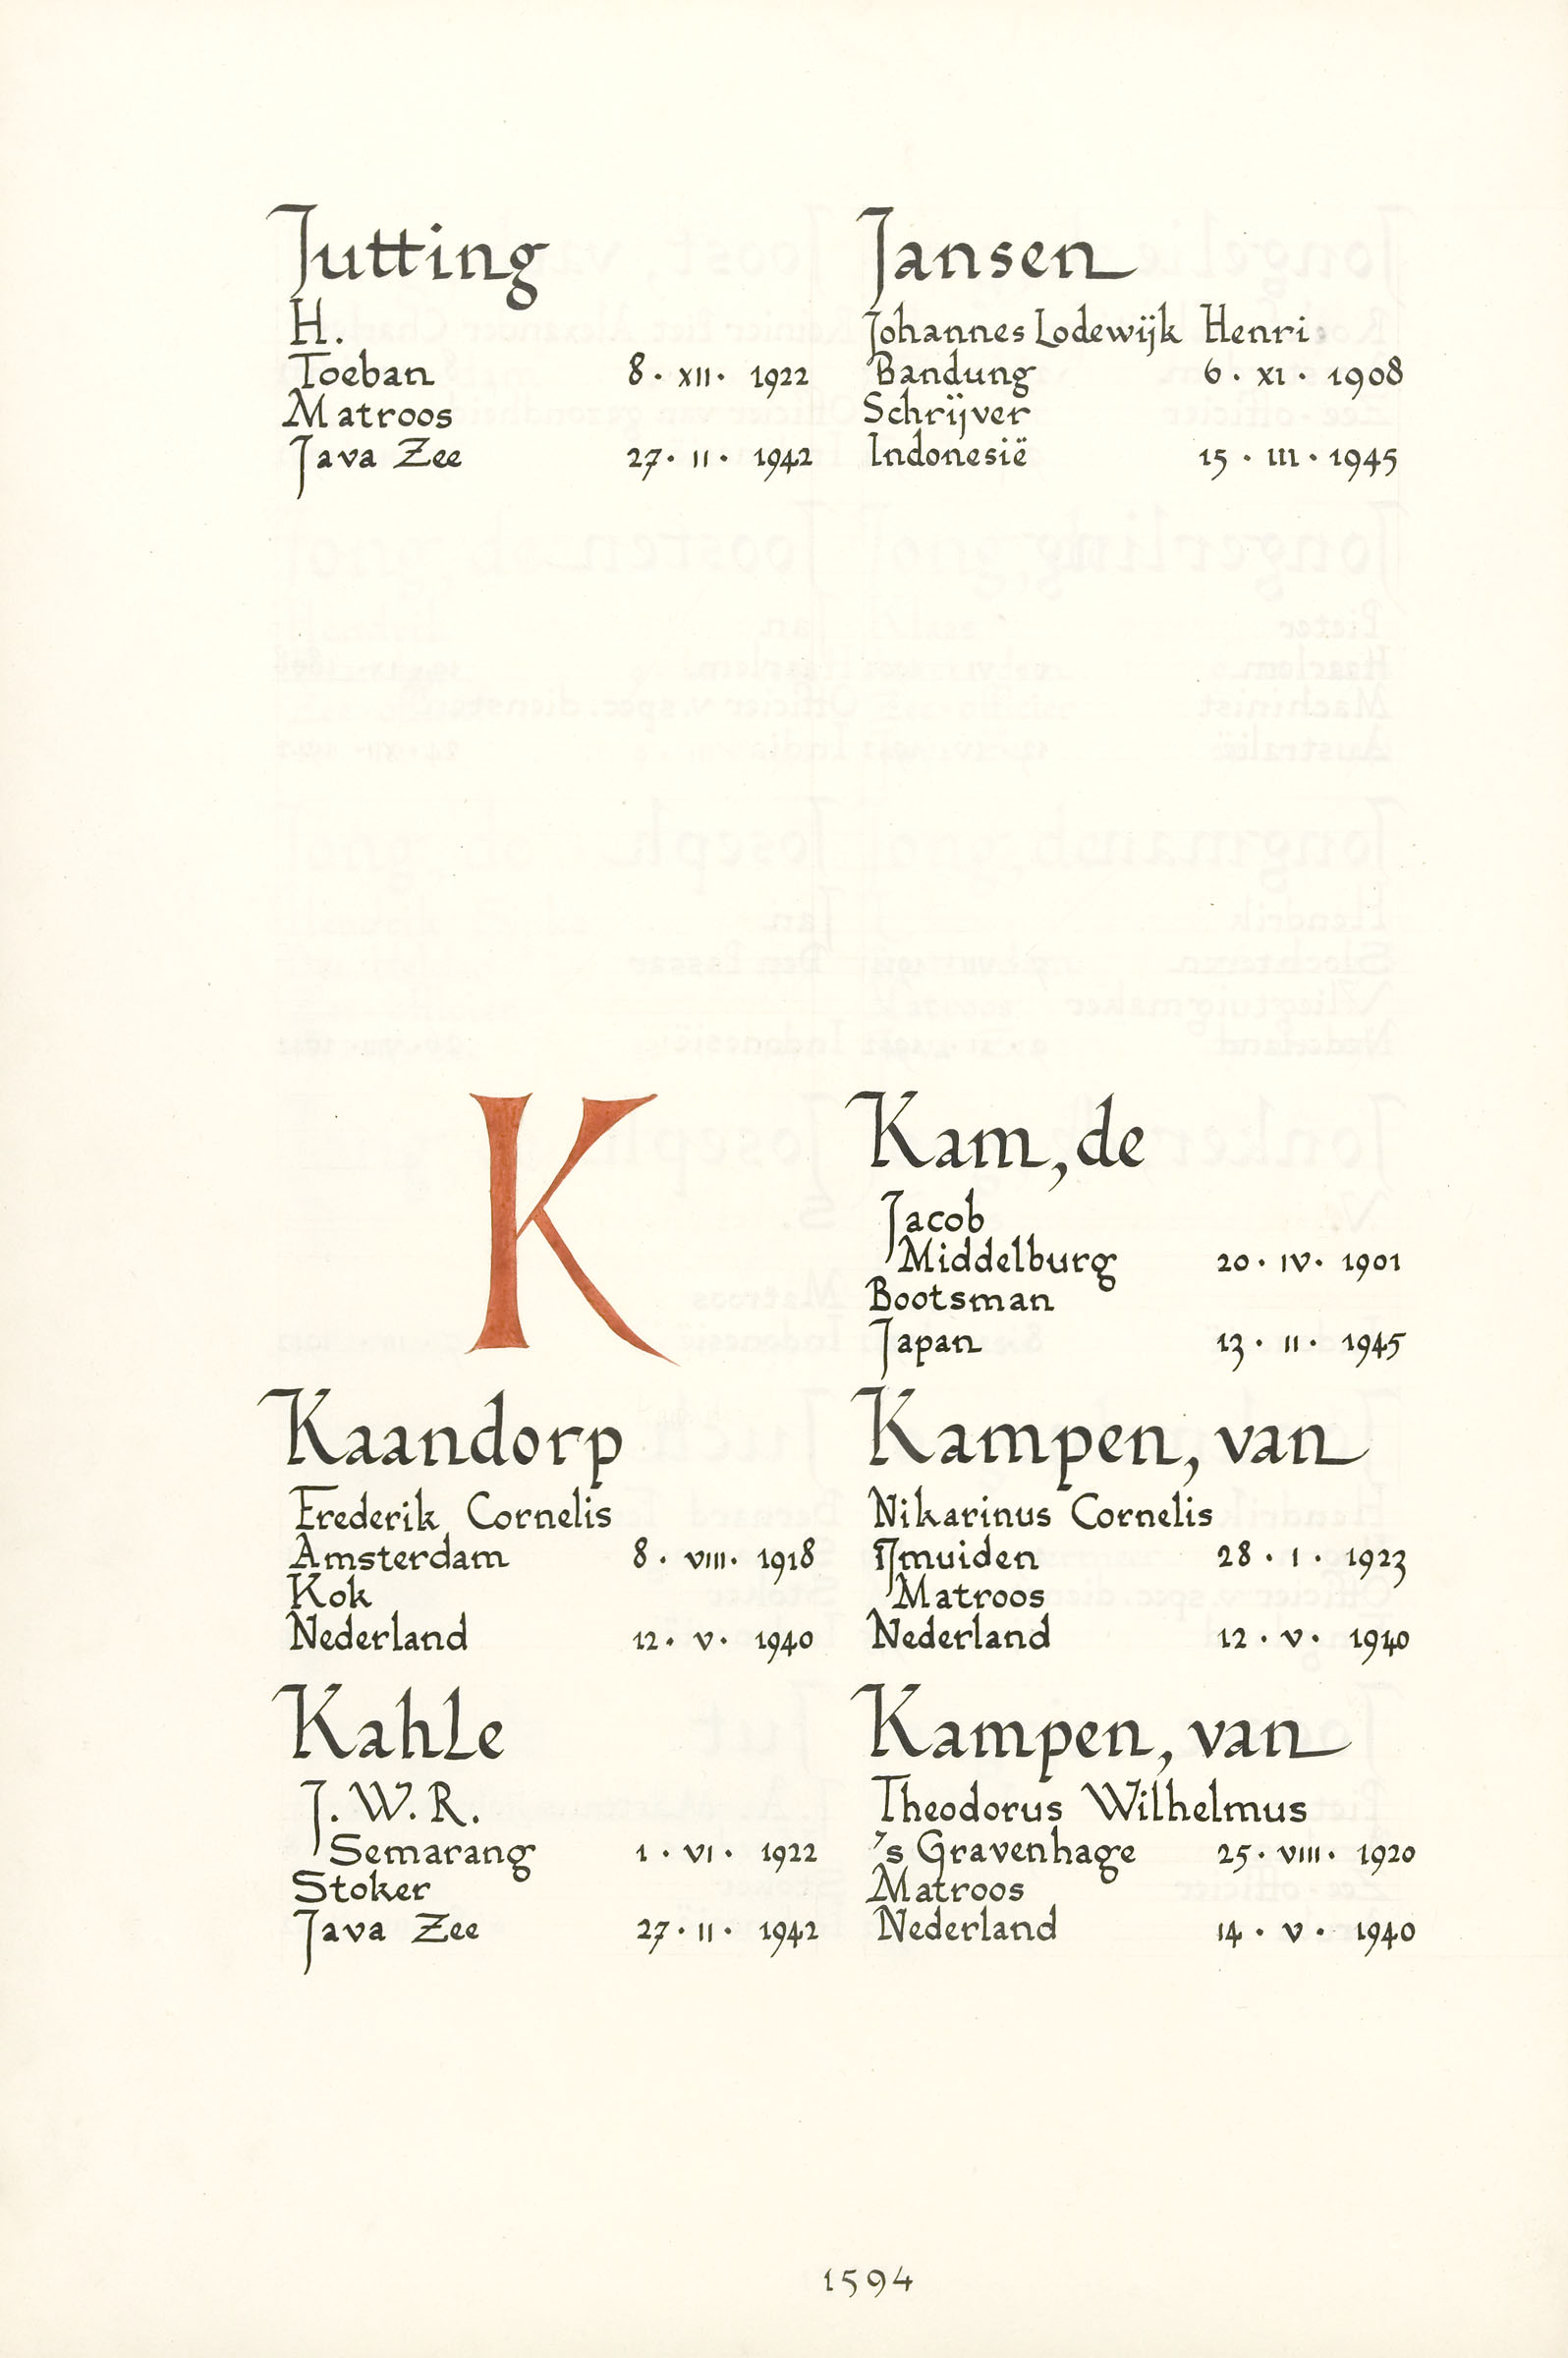 Jutting
H.
Toeban 8 · XII · 1922
Matroos
Java Zee 27 · II · 1942
Jansen
Johannes Lodewijk Henri
Bandung 6 · XI · 1908
Schrijver
Indonesië 15 · III · 1945
K
Kaandorp
Frederik Cornelis
Amsterdam 8 · VIII · 1918
Kok
Nederland 12 · V · 1940
Kahle
J. W. R.
Semarang 1 · VI · 1922
Stoker
Java Zee 27 · II · 1942
Kam, de
Jacob
Middelburg 20 · IV · 1901
Bootsman
Japan 13 · II · 1945
Kampen, van
Nikarinus Cornelis
IJmuiden 28 · I · 1923
Matroos
Nederland 12 · V · 1940
Kampen, van
Theodorus Wilhelmus
's Gravenhage 25 · VIII · 1920
Matroos
Nederland 14 · V · 1940
1594